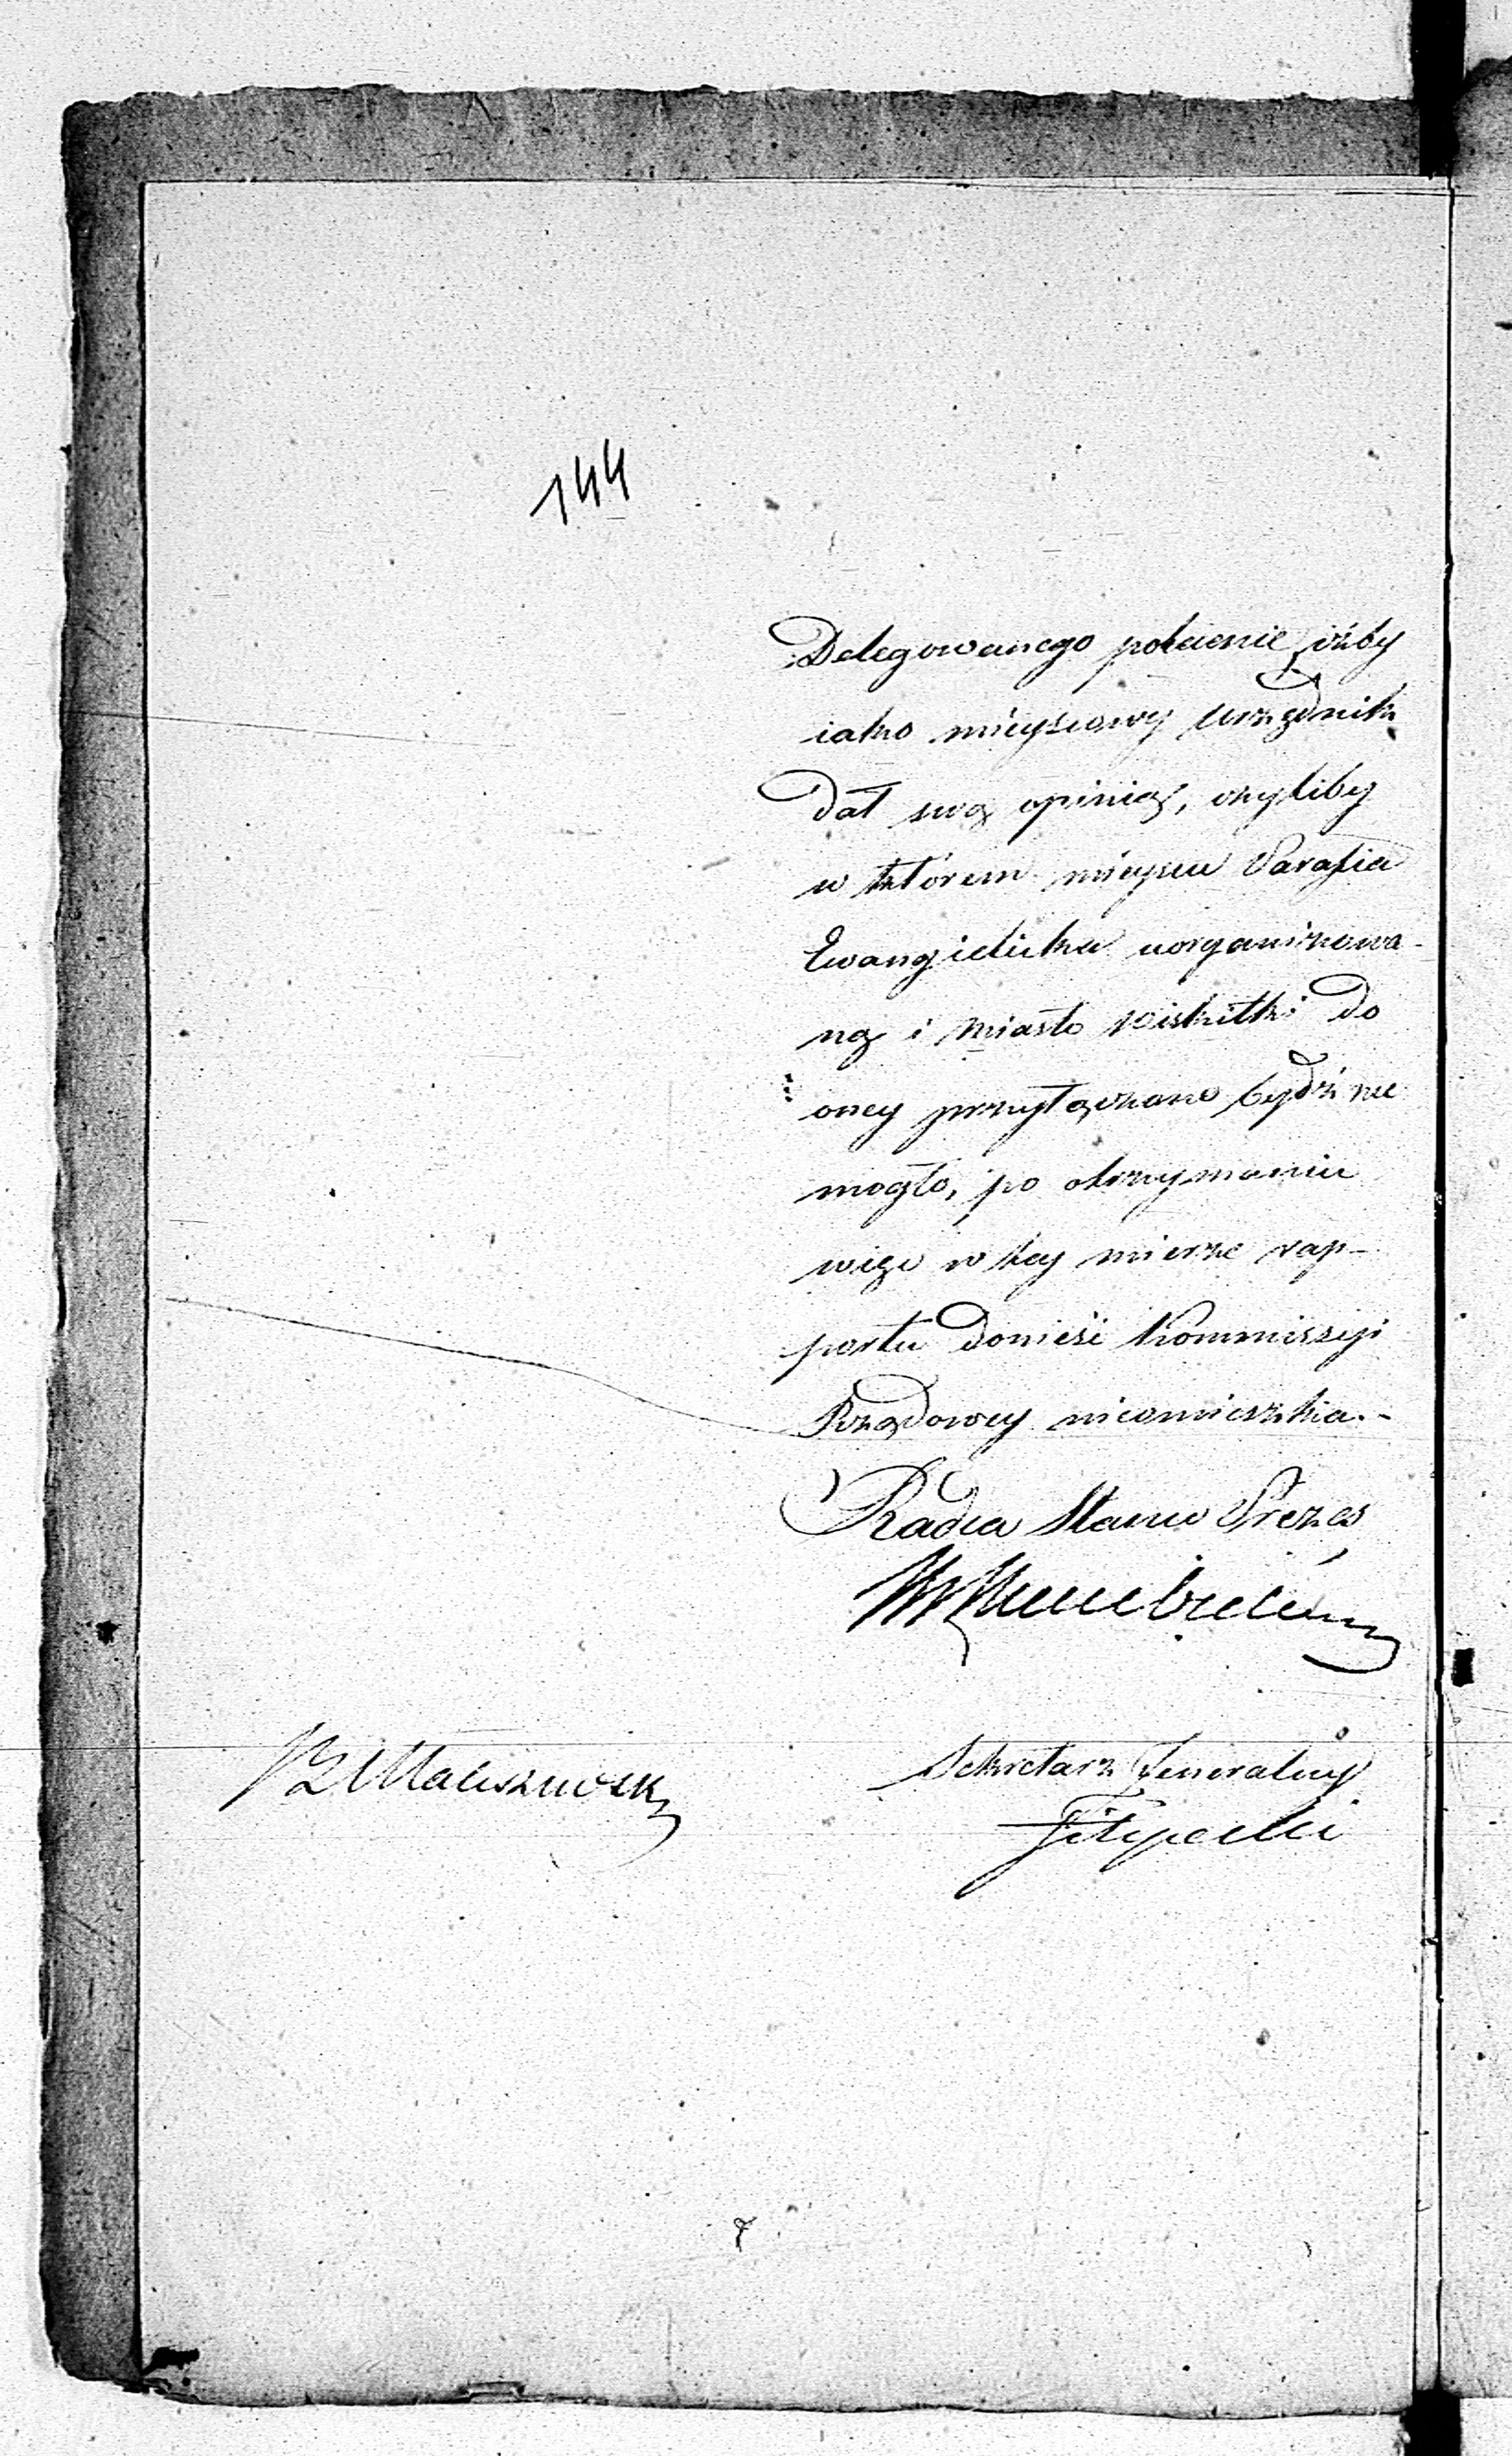 144
Delegowanego polecenie, iżby
iako mieyscowy Urzędnik
dał swą opinię, czyliby
w którem mieyscu Parafia
Ewangielicka uorganizowa-
ną i miasto Wiskitki do
oney przyłączone bydź nie
mogło, po otrzymaniu
więc w tey mierze rap-
portu donieść Kommissyi
Rządowey nieomieszka.-
Radca Stanu Prezes
Sekretarz Jeneralny
Filipecki